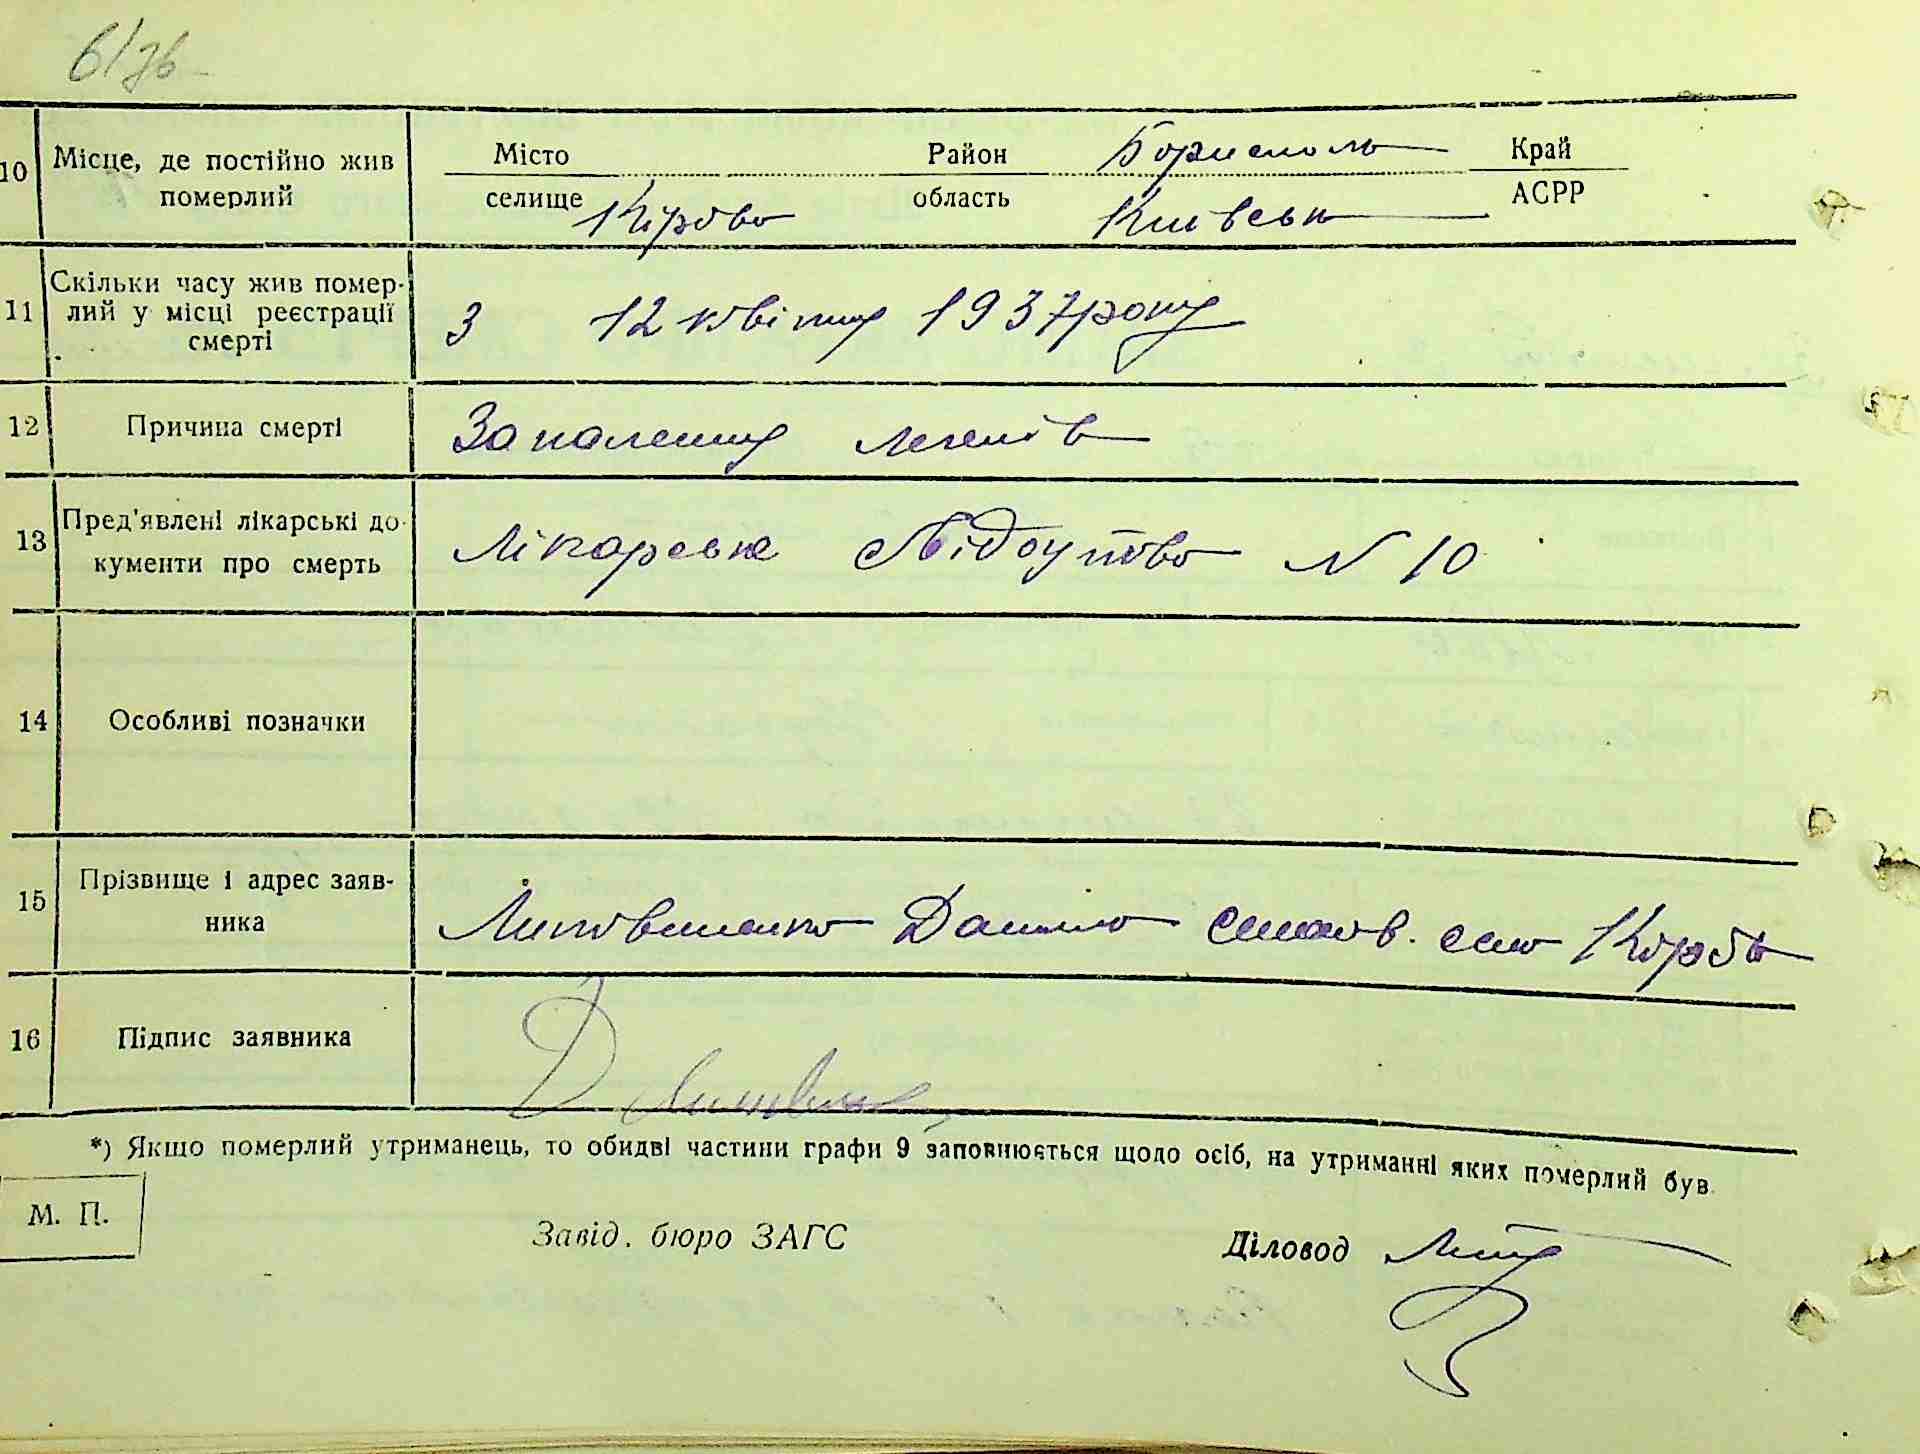 6/зв
10 Місце, де постійно жив померлий
Місто Район Борисполь Край
селище Кірово область Київськ АСРР
11 Скільки часу жив помер-
лий у місці реєстрації
смерті
З 12 квітня 1937 року
12 Причина смерті Запалення легенів
13 Пред'явлені лікарські до-
кументи про смерть
Лікарське N 10
14 Особливі позначки
15 Прізвище і адрес заяв-
ника
Данило село
16 Підпис заявника
*) Якщо померлий утриманець, то обидві частини графи 9 заповнюється щодо осіб, на утриманні яких померлий був.
М. П.
Завід. бюро ЗАГС Діловод